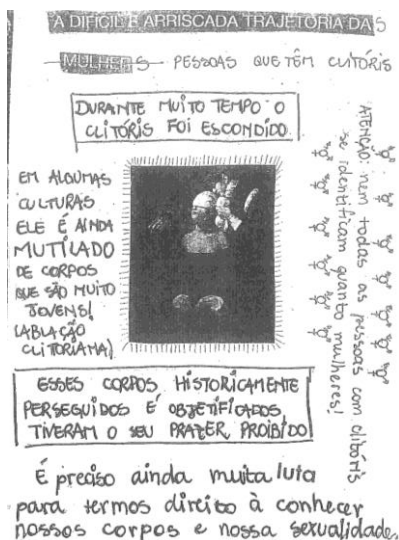 A DIFÍCIL E ARRISCADA TRAJETÓRIA DAS
MULHERES PESSOAS QUE TÊM CLITÓRIS
DURANTE MUITO TEMPO O
CLITÓRIS FOI ESCONDIDO
EM ALGUMAS
CULTURAS
ELE É AINDA
MUTILADO
DE CORPOS
QUE SÃO MUITO
JOVENS!
(ABLAÇÃO
CLITORIANA)
ATENÇÃO: nem todas as pessoas com clitóris
se identificam quanto mulheres!
ESSES CORPOS HISTORICAMENTE
PERSEGUIDOS E OBJETIFICADOS,
TIVERAM O SEU PRAZER PROIBIDO
É preciso ainda muita luta
para termos direito à conhecer
nossos corpos e nossa sexualidade.